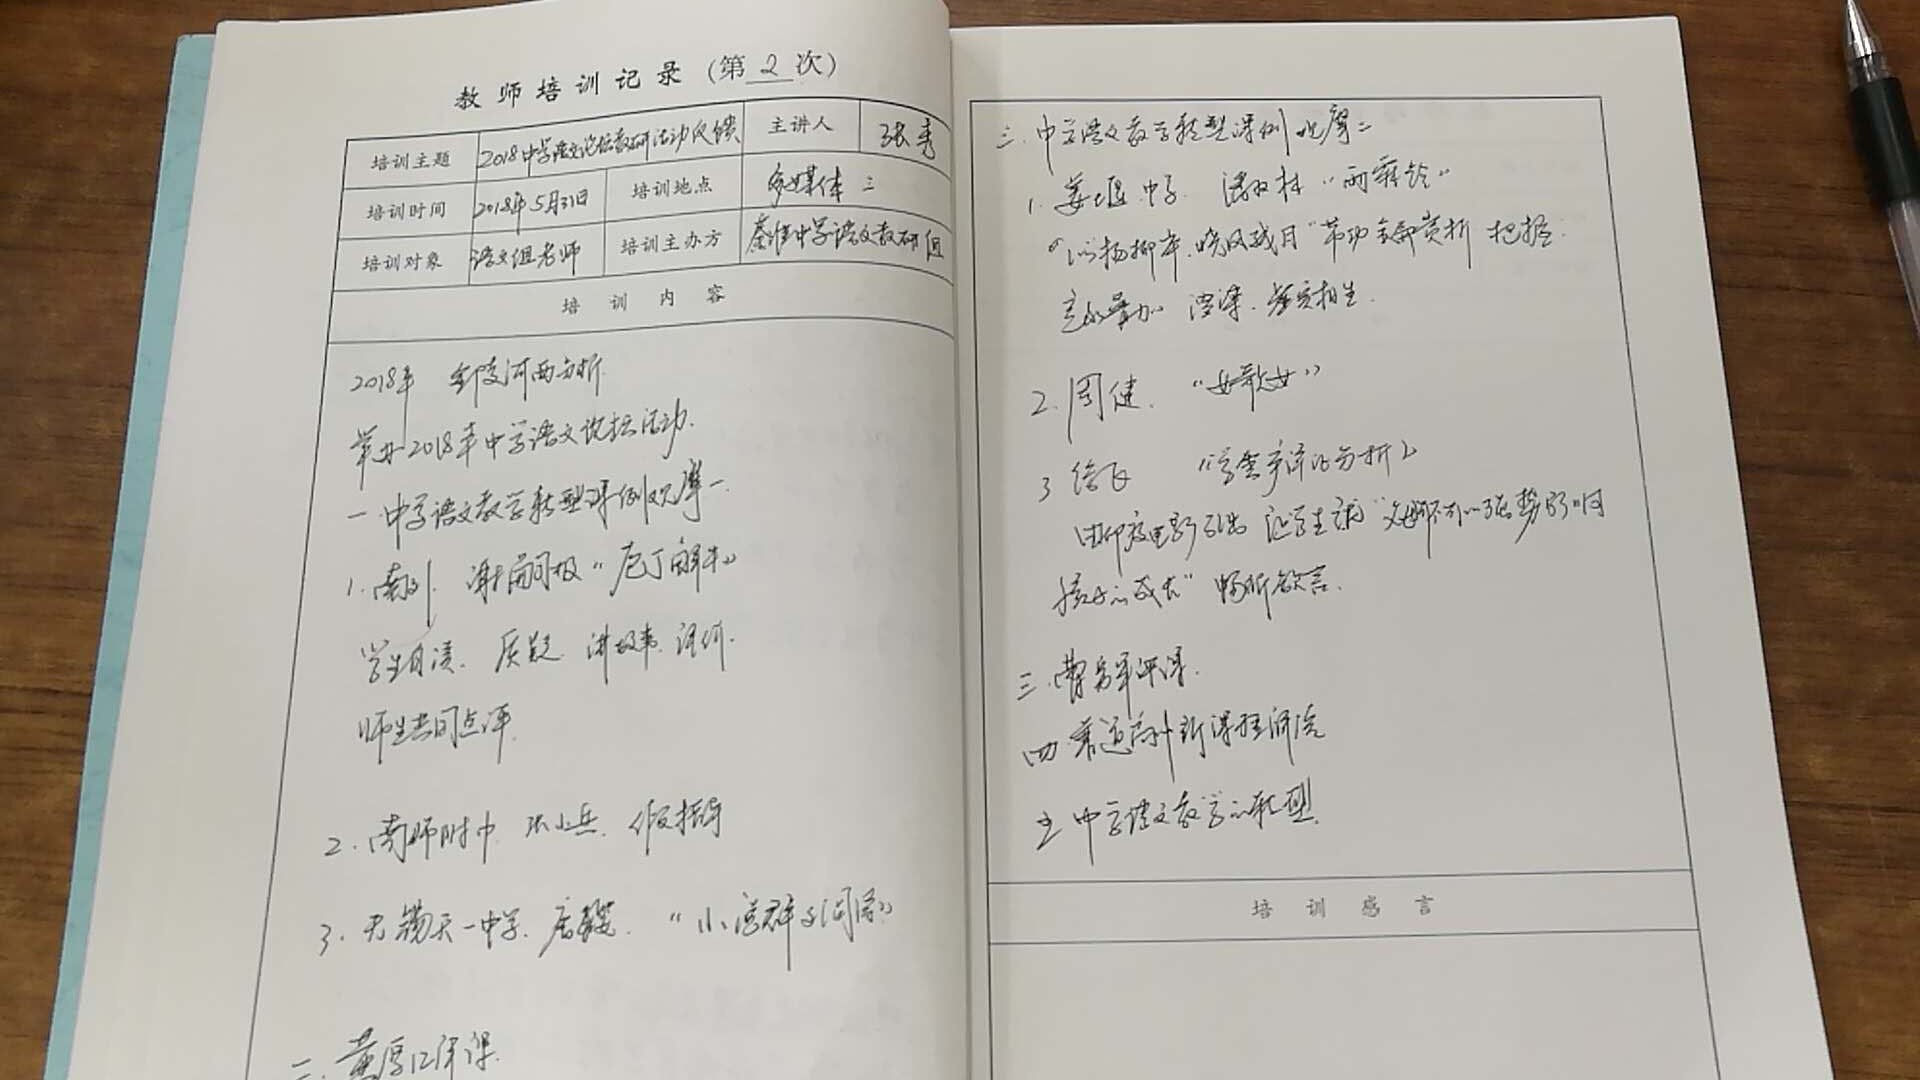 教师培训记录（第2次）
培训主题 2018中学语文论坛教研活动反馈 主讲人 张秀
培训时间 2018年5月31日 培训地点 多媒体三
培训对象 语文组老师 培训主办方 秦淮中学语文教研组
培训内容
2018年 河西分析.
举办2018年中学语文论坛活动.
一.中学语文教学转型课例观摩一.
1. 谢嗣极“庖丁解牛”
学生自读. 质疑. 讲故事. 评价.
师生共同点评.
2. 南师附中. 张小兵.
3. 无锡天一中学. 唐缨. “小说群文阅读”
二. 黄厚江评课.
三.中学语文教学转型课例观摩二
1. 姜堰中学. “雨霖铃”
“杨柳岸.晓风残月” 赏析 把握.
渲染. 虚实相生.
2. 周健. “
3 徐飞 “ 分析”
由印度电影引出 让学生谈“父母不可以强势影响
孩子的成长” 畅所欲言.
三. 评课.
四. 新课程
五 中学语文教学的转型.
培训感言